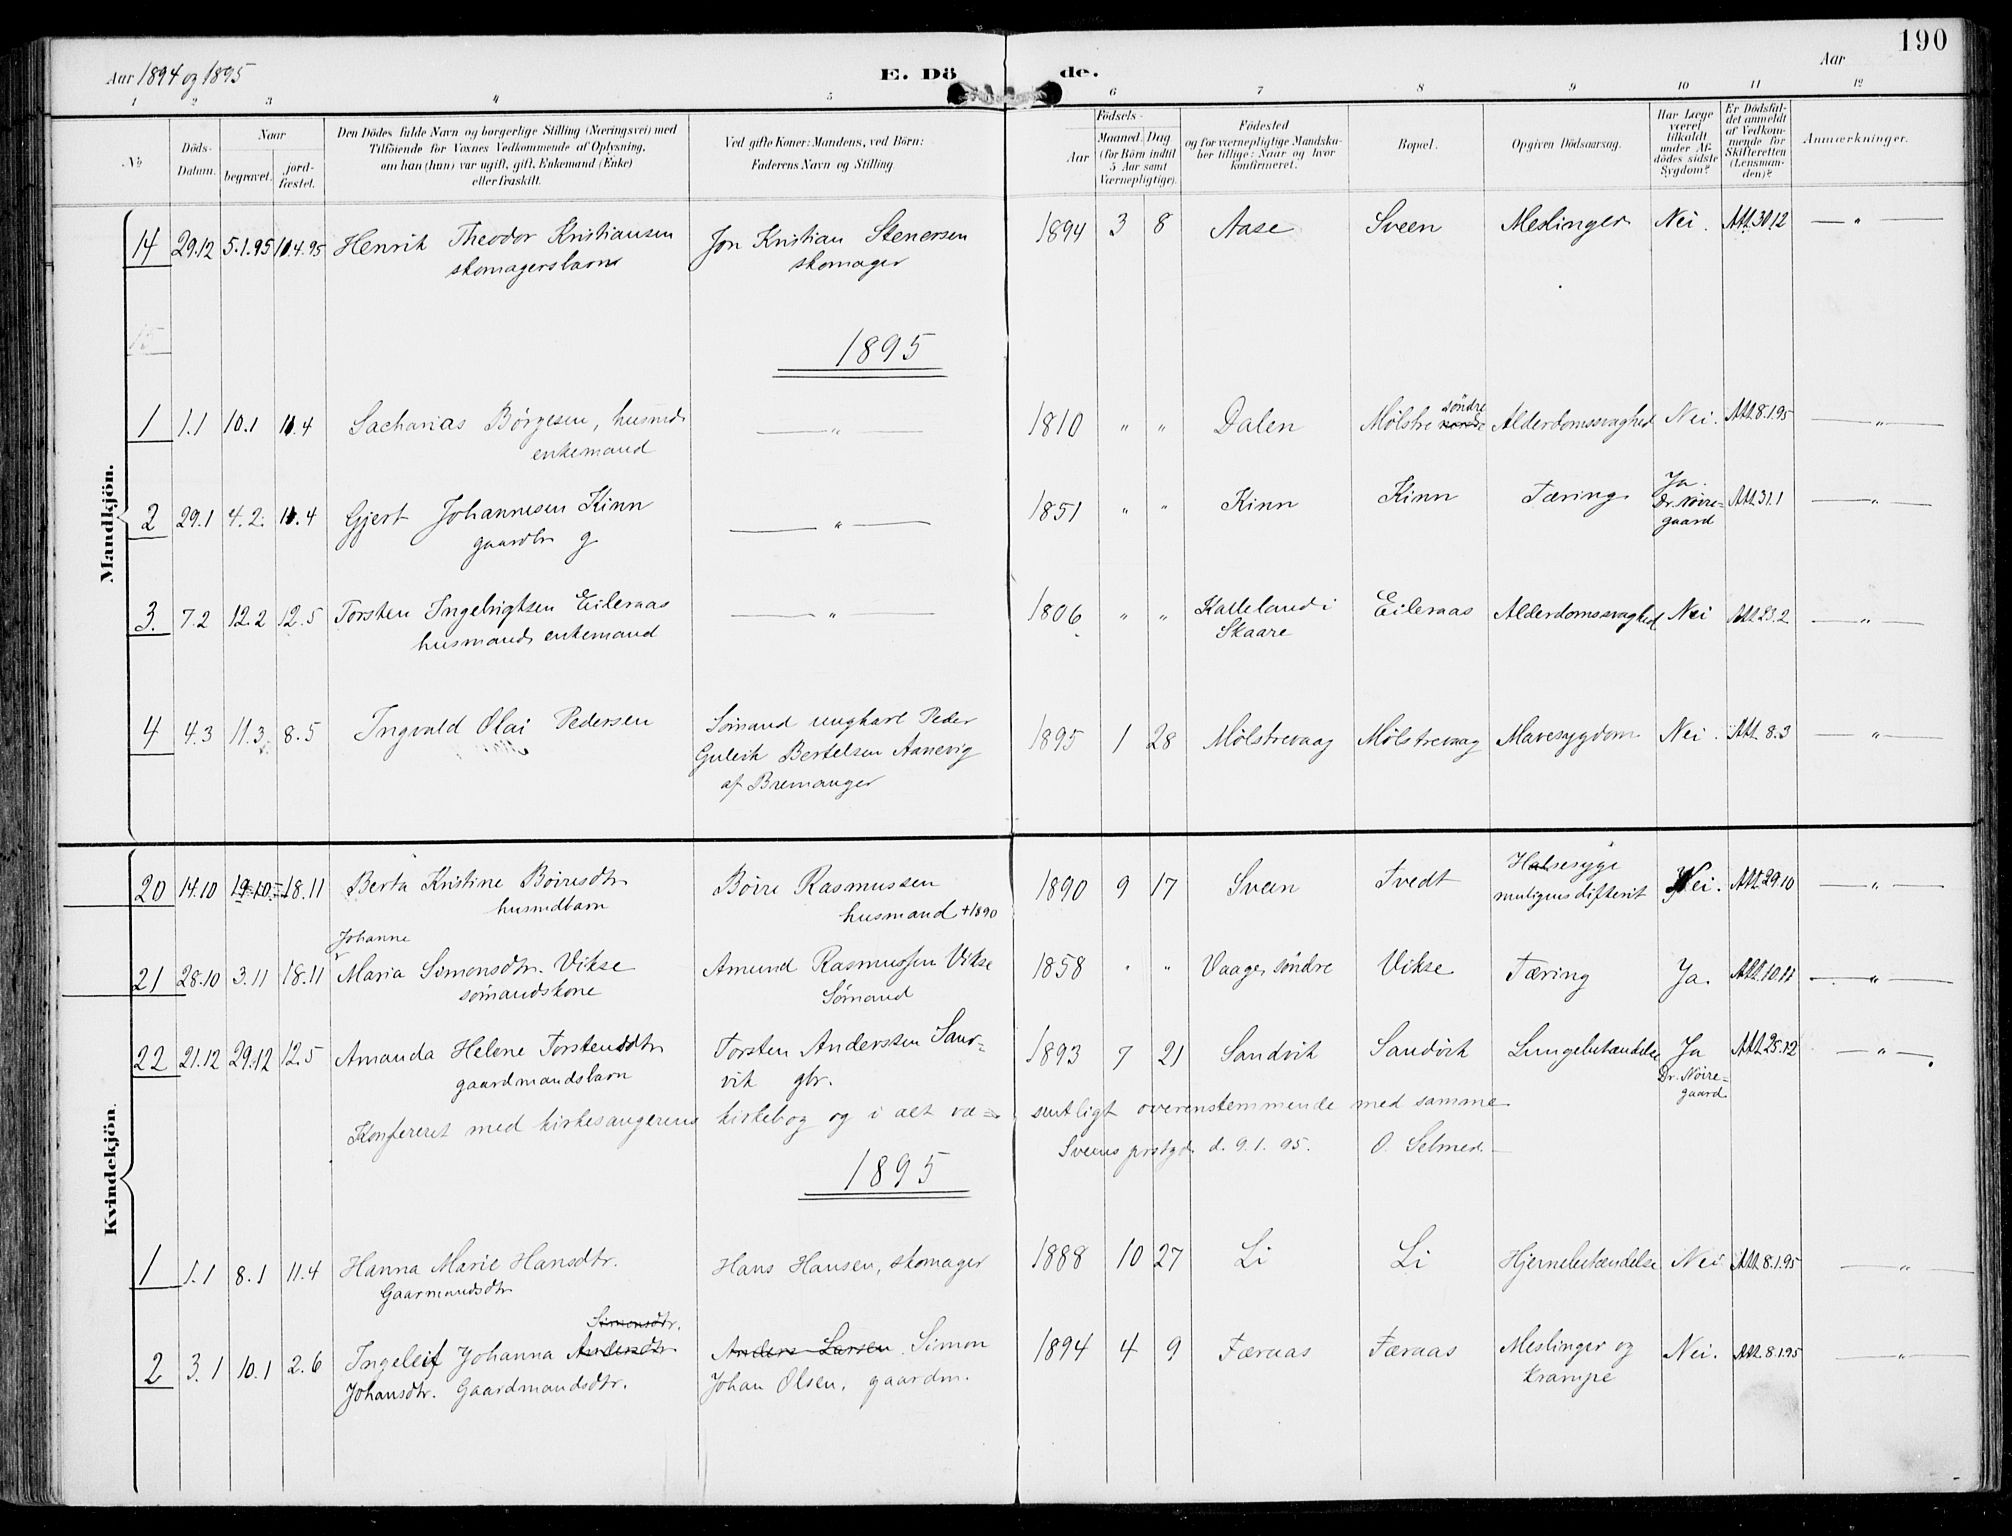 190
Aar 1894 og 1895
E. Dö de.
Aar
1 2 3 4 5 6 7 8 9 10 11 12
No
Döds-Datum.
Naar
begravet.
jord-fæstet.
Den Dödes fulde Navn og borgerlige Stilling (Næringsvei) med
Tilföiende for Voxnes Vedkommende af Oplysning,
om han (hun) var ugift, gift, Enkemand (Enke)
eller fraskilt.
Ved gifte Koner: Mandens, ved Börn:
Faderens Navn og Stilling.
Födsels-
Aar
Maaned. Dag
(for Börn indtil
5 Aar samt
Værnepligtige).
Födested
og for værnepligtige Mandska-
ber tillige: Naar og hvor
konfirmeret.
Bopæl.
Opgiven Dödsaarsag.
Har Læge
været
tilkaldt
under Af-
dödes sidste
Sygdom?
Er Dödsfal-
det anmeldt
af Vedkom-
mende for
Skifteretten
(Lensman-
den)?
Anmærkninger.
Mandkjön.
14 29.12 5.1.95 10.4.95 Henrik Theodor Kristiansen Jon Kristian Stenersen 1894 3 8 Aase Sveen Meslinger Nei. Att. 30.12 — " —
skomagersbarn skomager
15
1895
1 1.1 10.1 11.4 Sacharias Börgesen, husmd. — " — 1810 " " Dalen Mølstre søndre Alderdomssvaghed Nei. Att. 8.1.95 — " —
enkemand
2 29.1 4.2. 11.4 Gjert Johannesen Kinn — " — 1851 " " Kinn Kinn Tæring Ja. Att. 31.1 — " —
gaardbr g Dr. Nöire-
gaard
3. 7.2 12.2 12.5 Torsten Ingebrigtsen Eileraas — " — 1806 " " Kallelandi Eileraas Alderdomssvaghed Nei Att. 23.2 — " —
husmand enkemand Skaare
4 4.3 11.3 8.5 Ingvald Olai Pedersen Sømand ungkarl Peder 1895 1 28 Mølstrevaag Mølstrevaag Mavesygdom Nei. Att. 8.3 — " —
Guleik Bertelsen Aanevig
af Bremanger
Kvindekjön.
20 14.10 19.10. 18.11 Berta Kristine Böiresdtr Böire Rasmussen 1890 9 17 Sveen Tvedt Halsesyge Nei. Att. 29.10 — " —
husmdbarn husmand +1890 muligens difterit
Johanne
21 28.10 3.11 18.11 Maria Simonsdtr. Vikse Amund Rasmussen Vikse 1858 " " Vaage, söndre Vikse Tæring Ja. Att. 10.11 — " —
sömandskone Sömand
22 21.12 29.12 12.5 Amanda Helene Torstensdtr Torsten Andersten Sand- 1893 7 21 Sandvik Sandvik Lungebetændelse Ja Att. 25.12 — " —
gaardmandsbarn vik gbr. Dr. Nöire-
gaard
Konfereret med kirkesangerens kirkebog og i alt væ- sentligt overenstemmende med samme
Sveens prstgd. d. 9.1.95. O. Selmer.
1895
1 1.1 8.1 11.4 Hanna Marie Hansdtr. Hans Hansen, skomager 1888 10 27 Li Li Hjernebetændelse Nei Att. 8.1.95 — " —
Gaarmandsdtr
Simonsdtr.
2 3.1 10.1 2.6 Ingeleif Johanna Andersdtr Anders Larsen. Simon 1894 4 9 Færaas Færaas Meslinger og Nei. Att. 8.1.95 — " —
Johansdtr. Gaardmandsdtr. Johan Olsen, gaardm. Krampe